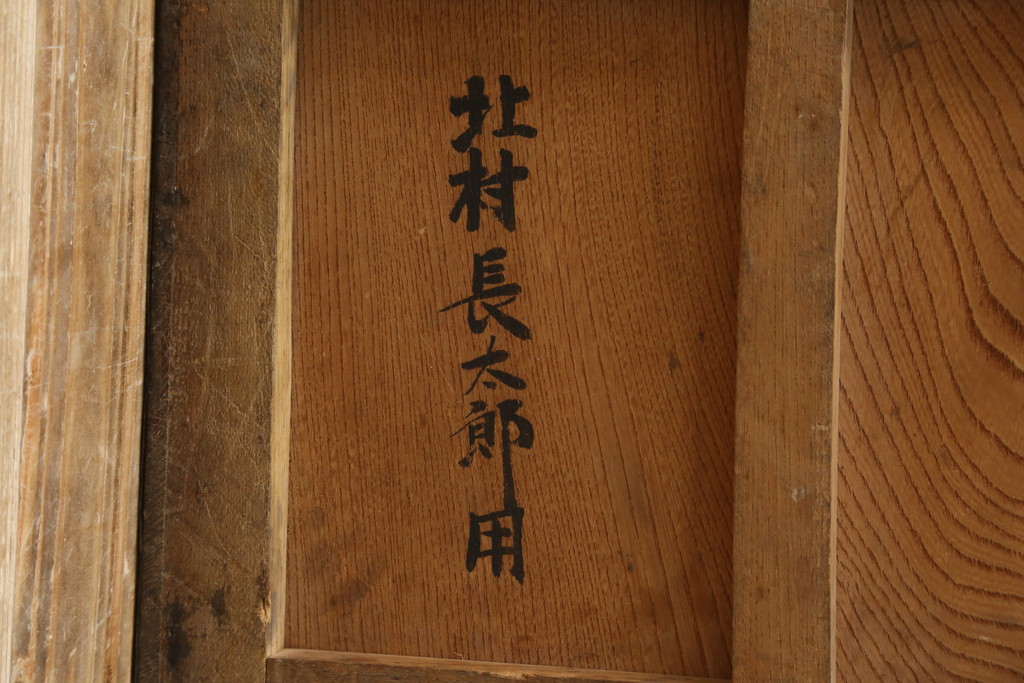 北村長太郎用